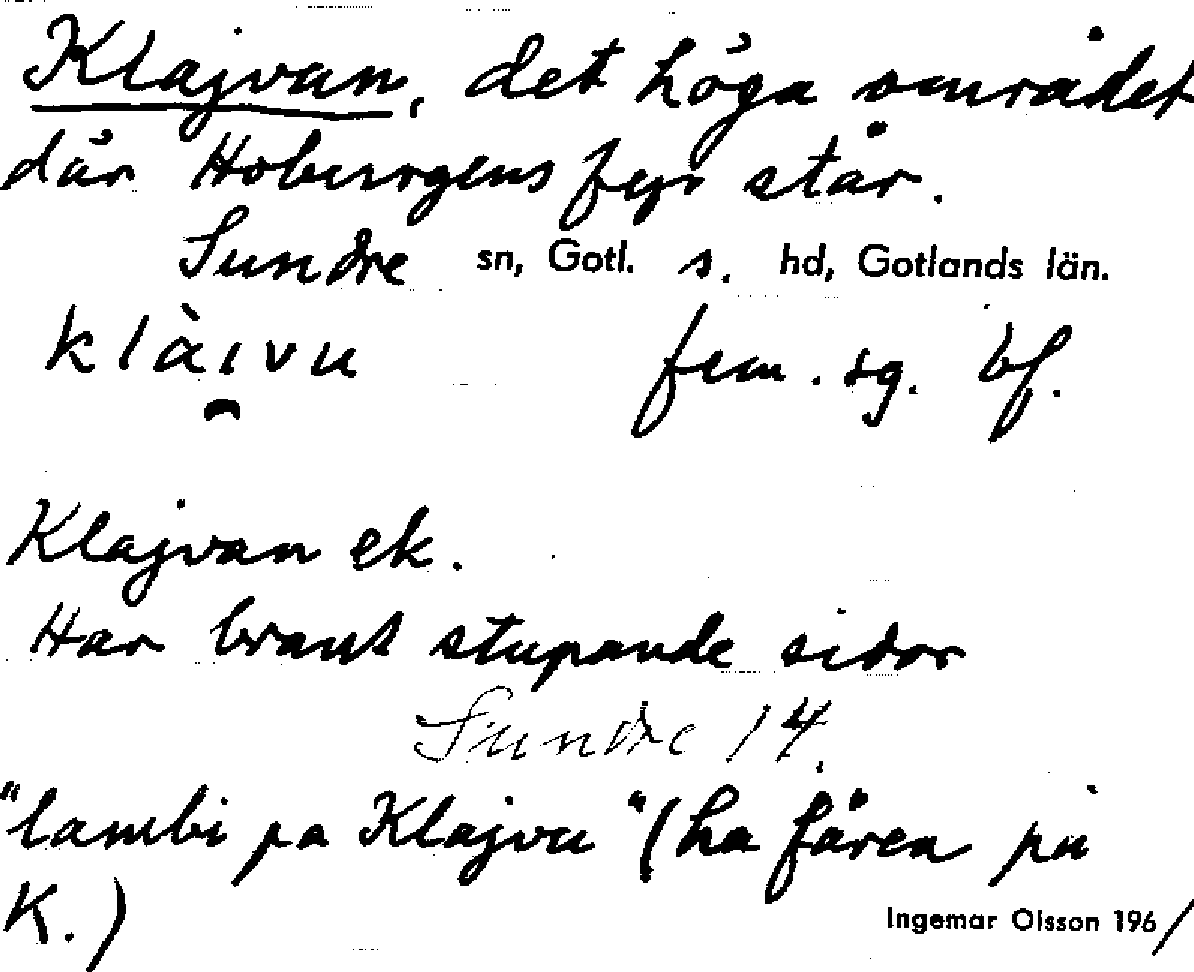 Klajvan, det höga området
där Hoburgens fyr står.
Sundre sn, Gotl. s. hd, Gotlands län.
klàɪ̯vu fem. sg. bf.
Klajvan ek.
Har brant stupande sidor
Sundre 14.
"lambi pa Klajvu" (ha fåren på
K.)
Ingemar Olsson 196/